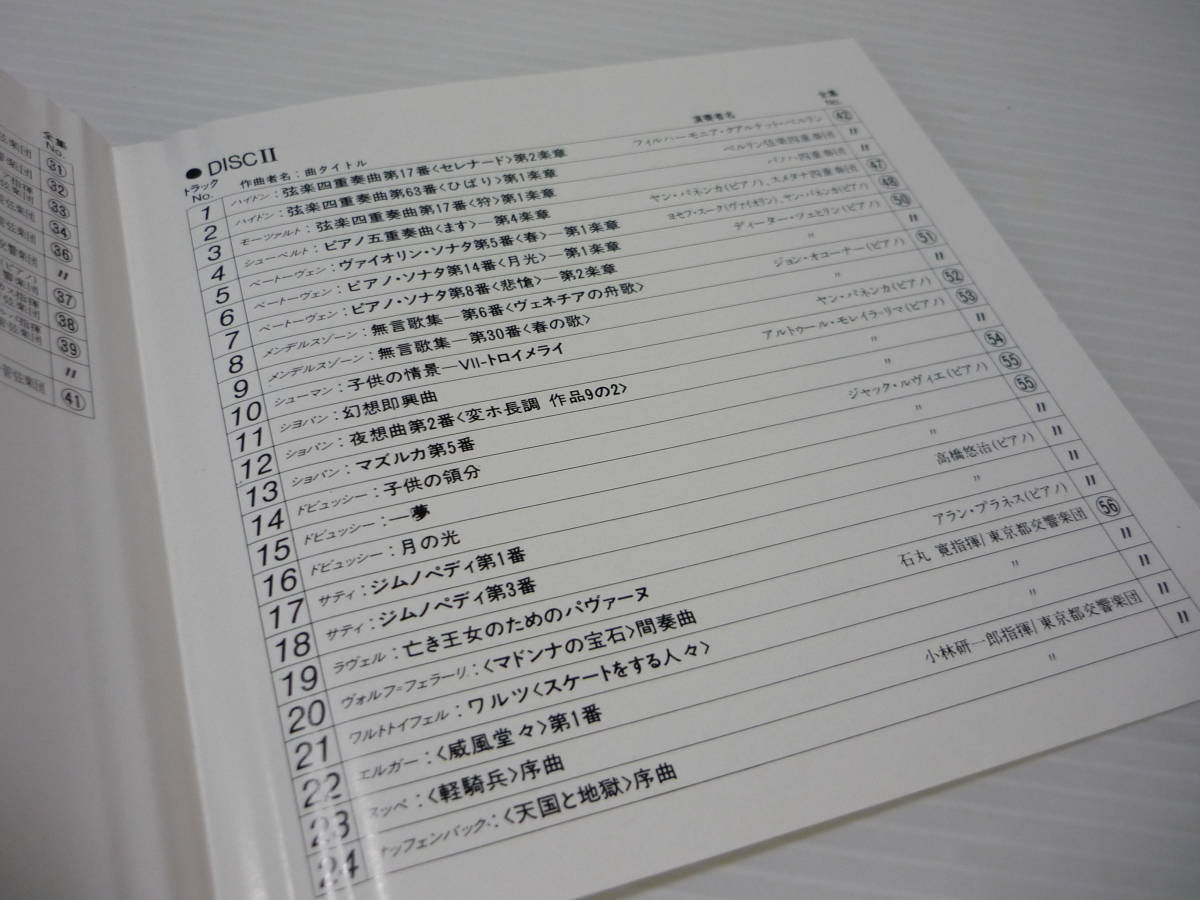 全集
No.
弦楽団 ㉛
㉜
指揮
管弦楽団 ㉝
弦楽団 ㉞
交響楽団 ㊱
〃
(ピアノ)
㊲
指揮
管弦楽団 ㊳
指揮
管弦楽団 ㊴
〃
管弦楽団 ㊶
● DISC II
トラックNo. 作曲者名：曲タイトル 演奏者名 全集No.
1 ハイドン：弦楽四重奏曲第17番〈セレナード〉第2楽章 フィルハーモニア・クアルテット・ベルリン ㊷
2 ハイドン：弦楽四重奏曲第63番〈ひばり〉第1楽章 ベルリン弦楽四重奏団 〃
3 モーツァルト：弦楽四重奏曲第17番〈狩〉第1楽章 パノハ四重奏団 〃
4 シューベルト：ピアノ五重奏曲〈ます〉―第4楽章 ヤン・パネンカ(ピアノ)、スメタナ四重奏団 ㊼
5 ベートーヴェン：ヴァイオリン・ソナタ第5番〈春〉―第1楽章 ヨセフ・スーク(ヴァイオリン)、ヤン・パネンカ(ピアノ) ㊽
6 ベートーヴェン：ピアノ・ソナタ第14番〈月光〉―第1楽章 ディーター・ツェヒリン(ピアノ) ㊿
7 ベートーヴェン：ピアノ・ソナタ第8番〈悲愴〉―第2楽章 〃 〃
8 メンデルスゾーン：無言歌集―第6番〈ヴェネチアの舟歌〉 ジョン・オコーナー(ピアノ) 51
9 メンデルスゾーン：無言歌集―第30番〈春の歌〉 〃 〃
10 シューマン：子供の情景―VII-トロイメライ ヤン・パネンカ(ピアノ) 52
11 ショパン：幻想即興曲 アルトゥール・モレイラ=リマ(ピアノ) 53
12 ショパン：夜想曲第2番〈変ホ長調 作品9の2〉 〃 〃
13 ショパン：マズルカ第5番 〃 54
14 ドビュッシー：子供の領分 ジャック・ルヴィエ(ピアノ) 55
15 ドビュッシー：―夢 〃 55
16 ドビュッシー：月の光 〃 〃
17 サティ：ジムノペディ第1番 高橋悠治(ピアノ) 〃
18 サティ：ジムノペディ第3番 〃 〃
19 ラヴェル：亡き王女のためのパヴァーヌ アラン・プラネス(ピアノ) 〃
20 ヴォルフ=フェラーリ：〈マドンナの宝石〉間奏曲 石丸 寛指揮/東京都交響楽団 56
21 ワルトトイフェル：ワルツ〈スケートをする人々〉 〃 〃
22 エルガー：〈威風堂々〉第1番 〃 〃
23 スッペ：〈軽騎兵〉序曲 小林研一郎指揮/東京都交響楽団 〃
24 オッフェンバック：〈天国と地獄〉序曲 〃 〃